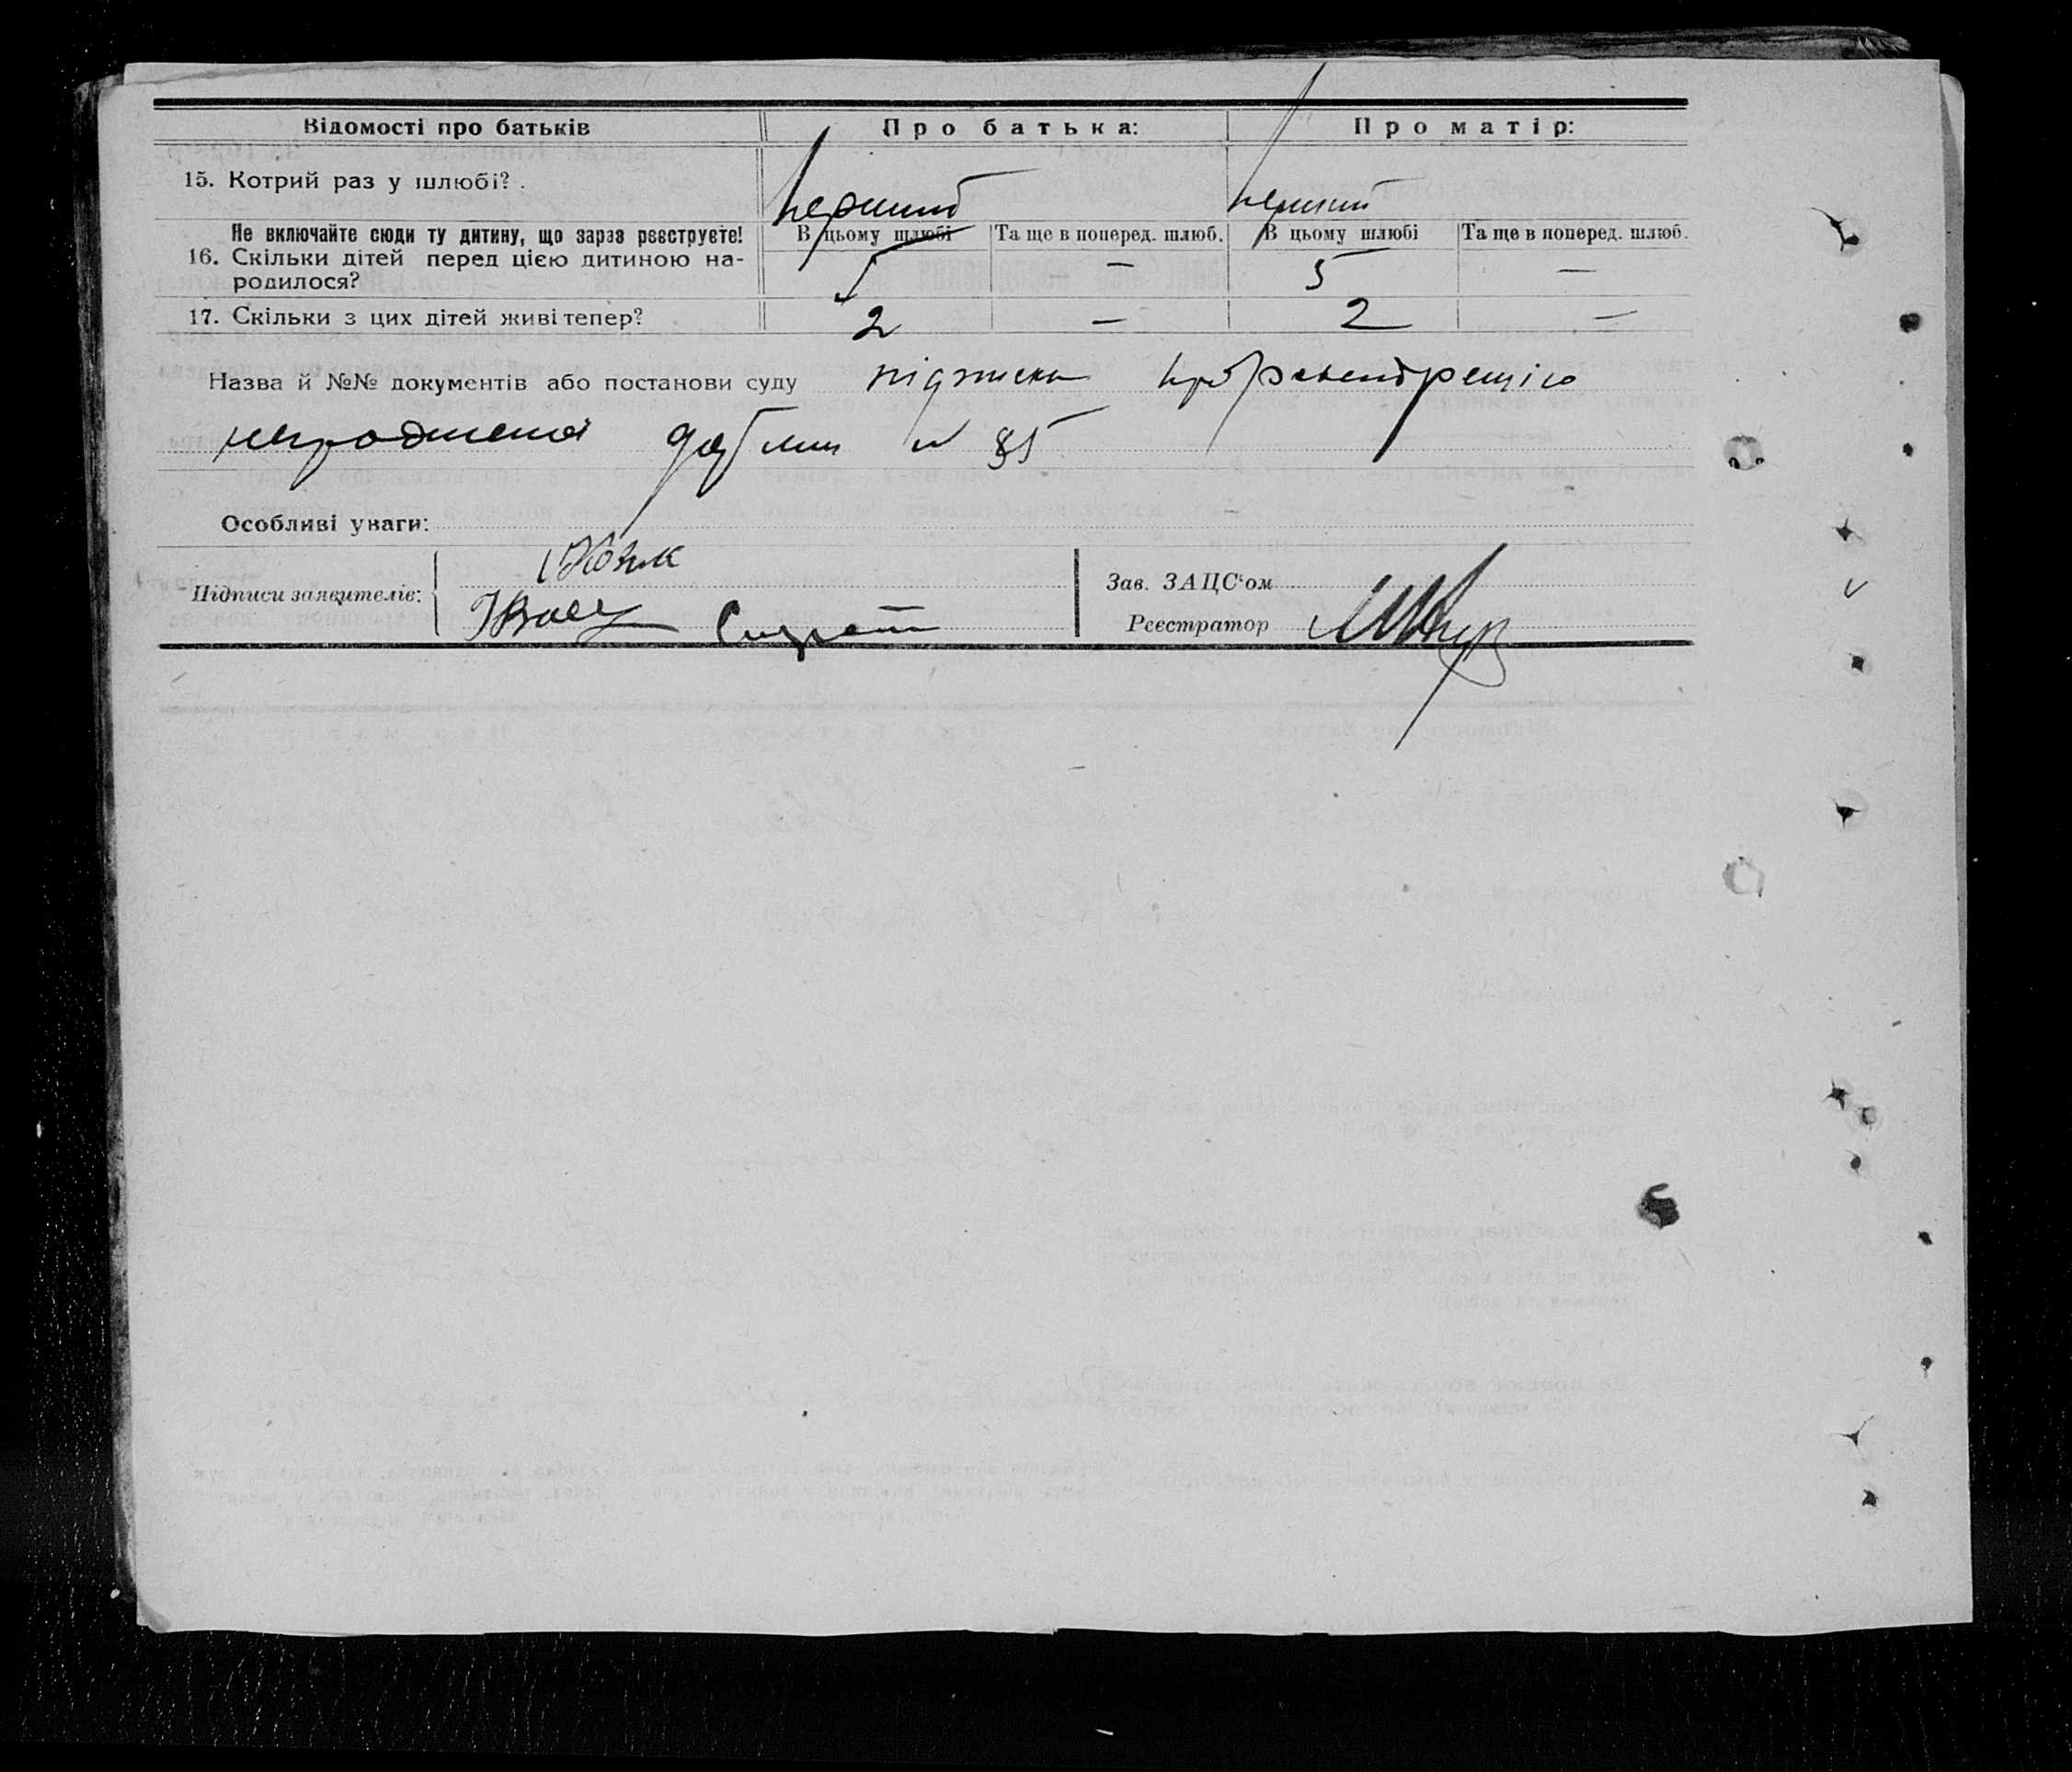 Відомості про батьків
Про батька:
Про матір:
15. Котрий раз у шлюбі?
перший
перший
Не включайте сюди ту дитину, що зараз реєструєте!
В цьому шлюбі
Та ще в поперед. шлюб.
В цьому шлюбі
Та ще в поперед. шлюб.
16. Скільки дітей перед цією дитиною на-
родилося?
5
—
5
—
17. Скільки з цих дітей живі тепер?
2
—
2
—
Назва й №№ документів або постанови суду підписка про
85
Особливі уваги:
Підписи заявителів:
Зав. ЗАЦС'ом
Реєстратор